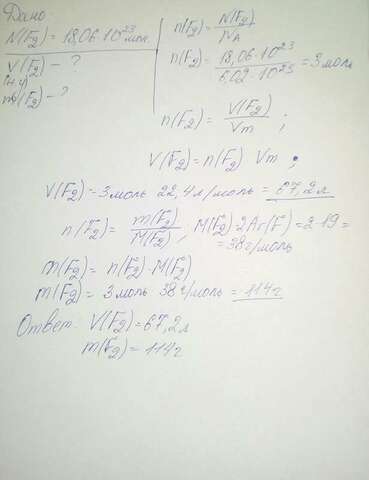 Дано
N(F2) = 18,06·10^23 мол.
V(F2) - ?
(н.у)
m(F2) - ?
n(F2) = N(F2)/NA
n(F2) = 18,06·10^23/6,02·10^23 = 3 моль
n(F2) = V(F2)/Vm ;
V(F2) = n(F2) Vm ;
V(F2) = 3 моль 22,4 л/моль = 67,2 л
n(F2) = m(F2)/M(F2) , M(F2) = 2Ar(F) = 2·19 =
= 38 г/моль
m(F2) = n(F2)·M(F2)
m(F2) = 3 моль 38 г/моль = 114 г
Ответ. V(F2) = 67,2 л
m(F2) = 114 г